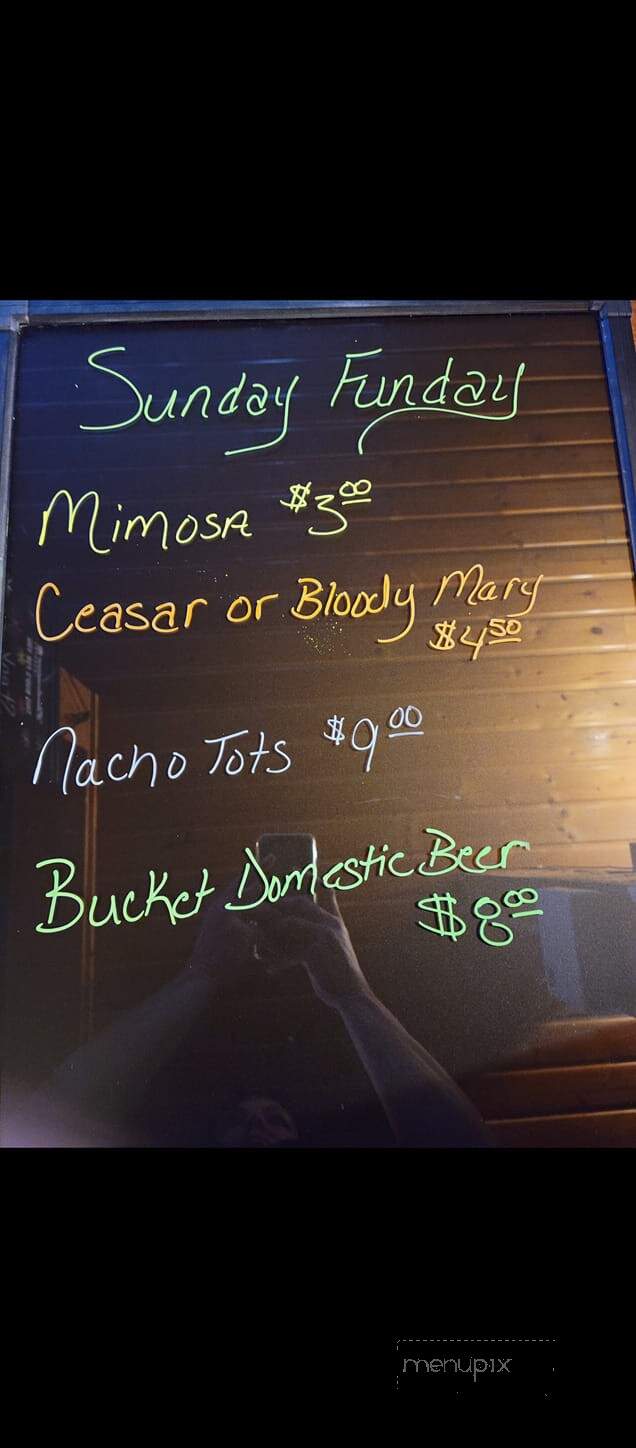 Sunday Funday
Mimosa $3.00
Ceasar or Bloody Mary
$4.50
Nacho Tots $9.00
Bucket Domestic Beer
$8.00
menupix